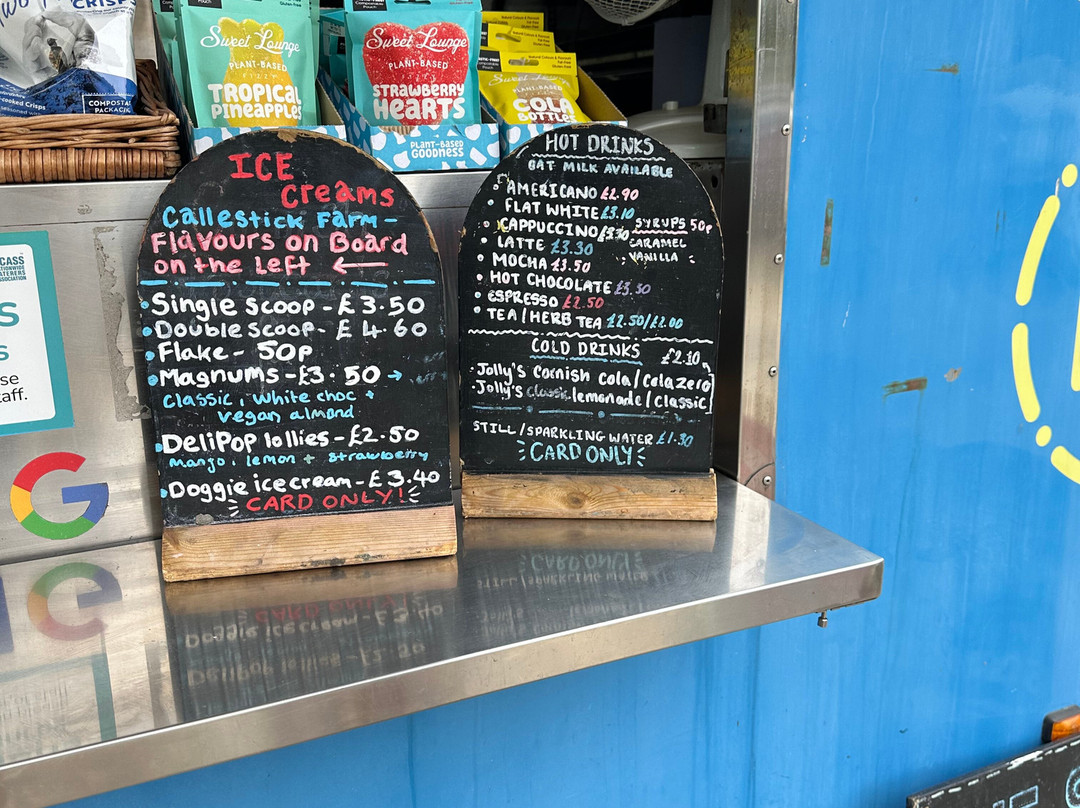 CRISPS
COMPOSTABLE
PACKAGING
Sweet Lounge
PLANT-BASED
FIZZY
TROPICAL
PINEAPPLES
Sweet Lounge
PLANT-BASED
FIZZY
STRAWBERRY
HEARTS
PLANT-BASED
GOODNESS
Sweet Lounge
PLANT-BASED
COLA
BOTTLES
ICE
creams
Callestick Farm -
Flavours on Board
on the left ←
Single scoop - £3.50
Double scoop - £4.60
Flake - 50p
Magnums - £3.50 →
classic, white choc +
vegan almond
DeliPop lollies - £2.50
mango, lemon + strawberry
Doggie ice cream - £3.40
CARD ONLY!
HOT DRINKS
OAT MILK AVAILABLE
• AMERICANO £2.90
• FLAT WHITE £3.10
• CAPPUCCINO £3.30
SYRUPS 50p
CARAMEL
VANILLA
• LATTE £3.30
• MOCHA £3.50
• HOT CHOCOLATE £3.50
• ESPRESSO £2.50
• TEA/HERB TEA £2.50/£2.00
COLD DRINKS £2.10
• Jolly's Cornish cola/cola zero
• Jolly's classic lemonade/classic
STILL/SPARKLING WATER £1.30
CARD ONLY
CASS
NATIONWIDE
CATERERS
ASSOCIATION
G